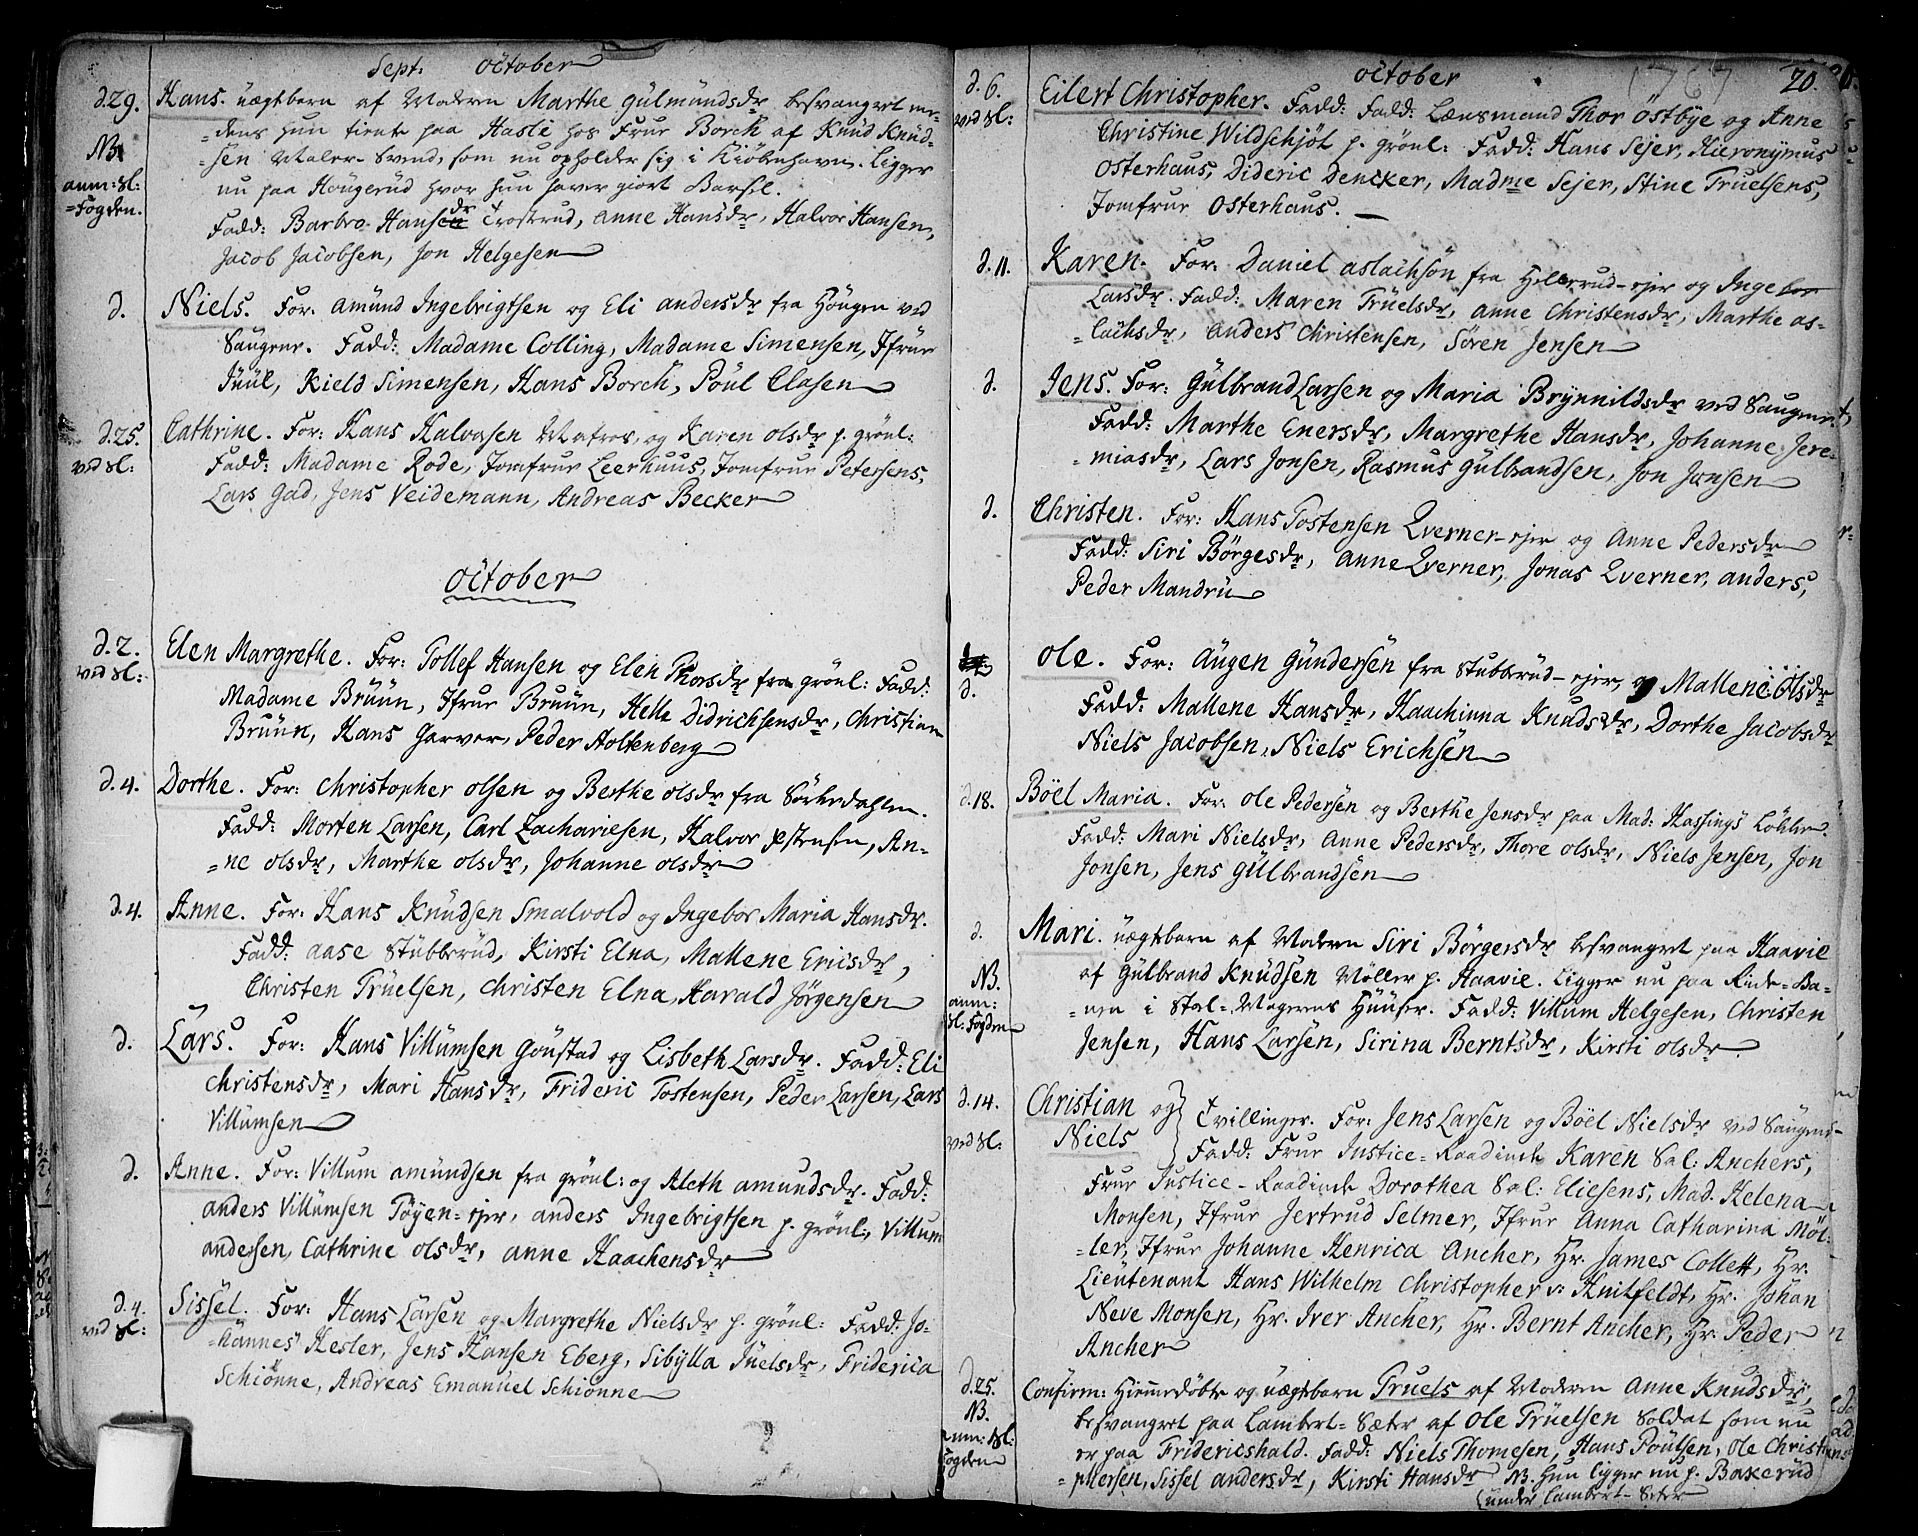 Sept. October
d. 29. Hans. uægtbarn af Moderen Marthe Gulmundsdr besvangret me-
NB =dens hun tiente paa Hasle hos Frue Borch af Knud Knud-
=sen Maler-Svend, som nu opholder sig i Kiøbenhavn. Ligger
anm: Sl: =Fogden. nu paa Hougerud hvor hun haver giort Barsel.
Fadd: Barbro Hansdr Trostrud, Anne Hansdr, Halvor Hansen,
Jacob Jacobsen, Jon Helgesen
d. Niels. For: Amund Ingebrigtsen og Eli Andersdr fra Hougen ved
Saugene. Fadd: Madame Colling, Madame Simensen, Jfrue
Juul, Kield Simensen, Hans Borch, Poul Clasen
d. 25. Cathrine. For: Hans Halvorsen Matros, og Karen Olsdr p. Grönl:
ved Sl: Fadd: Madame Rode, Jomfrue Leerhuus, Jomfrue Petersens,
Lars Gad, Jens Veidemann, Andreas Becker
October
d. 2. Elen Margrethe. For: Tollef Hansen og Elen Thorsdr fra Grönl: Fadd:
ved Sl: Madame Bruun, Jfrue Bruun, Helle Didrichsensdr, Christian
Bruun, Hans Garver, Peder Holtenberg
d. 4. Dorthe. For: Christopher Olsen og Berthe Olsdr fra Sörkedahlen.
Fadd: Morten Larsen, Carl Zachariesen, Halvor Estensen, An-
=ne Olsdr, Marthe Olsdr, Johanne Olsdr
d. 4. Anne. For: Hans Knudsen Smalvold og Ingebor Maria Hansdr.
Fadd: Aase Stubberud, Kirsti Elna, Mallene Ericsdr,
Christen Truelsen, Christen Elna, Harald Jörgensen
d. Lars. For: Hans Villumsen Goustad og Lisbeth Larsdr. Fadd: Eli
Christensdr, Mari Hansdr, Frideric Tostensen, Peder Larsen, Lars
Villumsen
d. Anne. For: Villum Amundsen fra Grönl: og Aleth Amundsdr. Fadd:
Anders Villumsen Töyen-ejer, Anders Ingebrigtsen p. Grönl:, Villum
Andersen, Cathrine Olsdr, Anne Haachensdr
d. 4. Sissel. For: Hans Larsen og Margrethe Nielsdr p. Grönl: Fadd: Jo-
ved Sl: =hannes Hesler, Jens Hansen Eberg, Sibylla Juelsdr, Friderica
Schiönne, Andreas Emanuel Schiönne
October 1767 20.
d. 6. Eilert Christopher. Fadd: Fadd: Lænsmand Thor Östbye og Anne
ved Sl: Christine Wildschjöt p. Grönl: Fadd: Hans Sejer, Hieronymus
Osterhaus, Dideric Dencker, Madme Sejer, Stine Truelsens,
Jomfrue Osterhaus.
d. 11. Karen. For: Daniel Aslachsön fra Hellerud-ejer og Ingebor
Larsdr. Fadd: Maren Truelsdr, Anne Christensdr, Marthe As-
=lachsdr, Anders Christensen, Sören Jensen
d. Jens. For: Gulbrand Larsen og Maria Brynnildsdr ved Saugene.
Fadd: Marthe Enersdr, Margrethe Hansdr, Johanne Jere-
=miasdr, Lars Jonsen, Rasmus Gulbrandsen, Jon Jonsen
d. Christen. For: Hans Tostensen Qverner-ejer og Anne Pedersdr
Fadd: Siri Börgesdr, Anne Qverner, Jonas Qverner, Anders,
Peder Mandru
d. Ole. For: Augen Gundersen fra Stubberud-ejer, og Mallene Olsdr
Fadd: Mallene Hansdr, Haachinna Knudsdr, Dorthe Jacobsdr
Niels Jacobsen, Niels Erichsen
d. 18. Böel Maria. For: Ole Pedersen og Berthe Jensdr paa Mad: Hassings Löhke.
Fadd: Mari Nielsdr, Anne Pedersdr, Thore Olsdr, Niels Jensen, Jon
Jonsen, Jens Gulbrandsen
d. Mari. uægtbarn af Moderen Siri Börgersdr besvangret paa Haavie
NB. af Gulbrand Knudsen Möller p. Haavie. Ligger nu paa Ride-Ba-
anm: =nen i Stal-Mesterens Huuser. Fadd: Villum Helgesen, Christen
Sl: Fogden Jensen, Hans Larsen, Sirina Berntsdr, Kirsti Olsdr.
d. 14. Christian og Tvillinger. For: Jens Larsen og Böel Nielsdr ved Saugene
ved Sl: Niels Fadd: Frue Justice-Raadinde Karen Sal: Anchers,
Frue Justice-Raadinde Dorothea Sal: Eliesens, Mad. Helena
Monsen, Jfrue Jertrud Selmer, Jfrue Anna Catharina Möl-
=ler, Jfrue Johanne Henrica Ancher, Hr. James Collett, Hr.
Lieutenant Hans Wilhelm Christopher v: Hnitfeldt, Hr. Johan
Neve Monsen, Hr. Iver Ancher, Hr. Bernt Ancher, Hr. Peder
Ancher
d. 25. Confirm: Hiemmedöbte og uægtbarn Truels af Moderen Anne Knudsdr,
NB. besvangret paa Lambert-Sæter af Ole Truelsen Soldat som nu
anm: Sl: er paa Fridericshald. Fadd: Niels Thomesen, Hans Poulsen, Ole Christ-
Fogden =phersen, Sissel Andersdr, Kirsti Hansdr NB. Hun ligger nu p. Bakerud
under Lambert-Seter